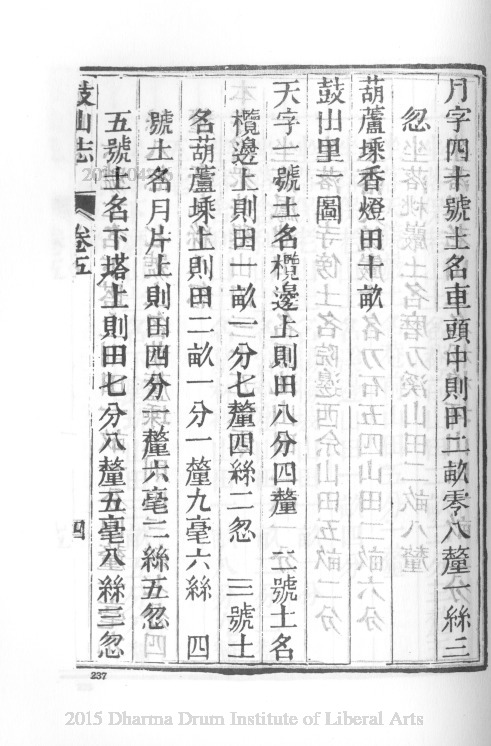 月字四十號土名車頭中則田二畝零八釐一絲三
忽
葫蘆塛香燈田十畝
鼓山里一圖
天字一號土名欖邊上則田八分四釐　二號土名
欖邊上則田一畝一分七釐四絲二忽　三號土
名葫蘆塛上則田二畝一分一釐九毫六絲　四
號土名月片上則田四分一釐六毫二絲五忽　
五號土名下塔上則田七分八釐五毫八絲三忽
鼓山志　卷五　四
237
2015 Dharma Drum Institute of Liberal Arts